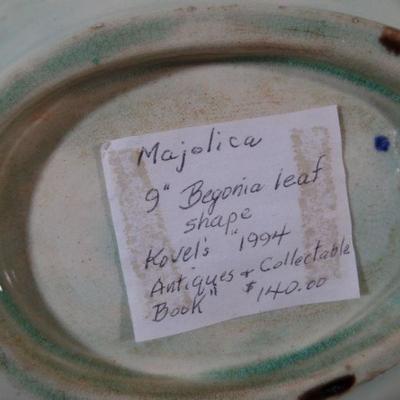 Majolica
9" Begonia leaf
shape
Kovel's "1994
Antiques & Collectable
Book" $140.00